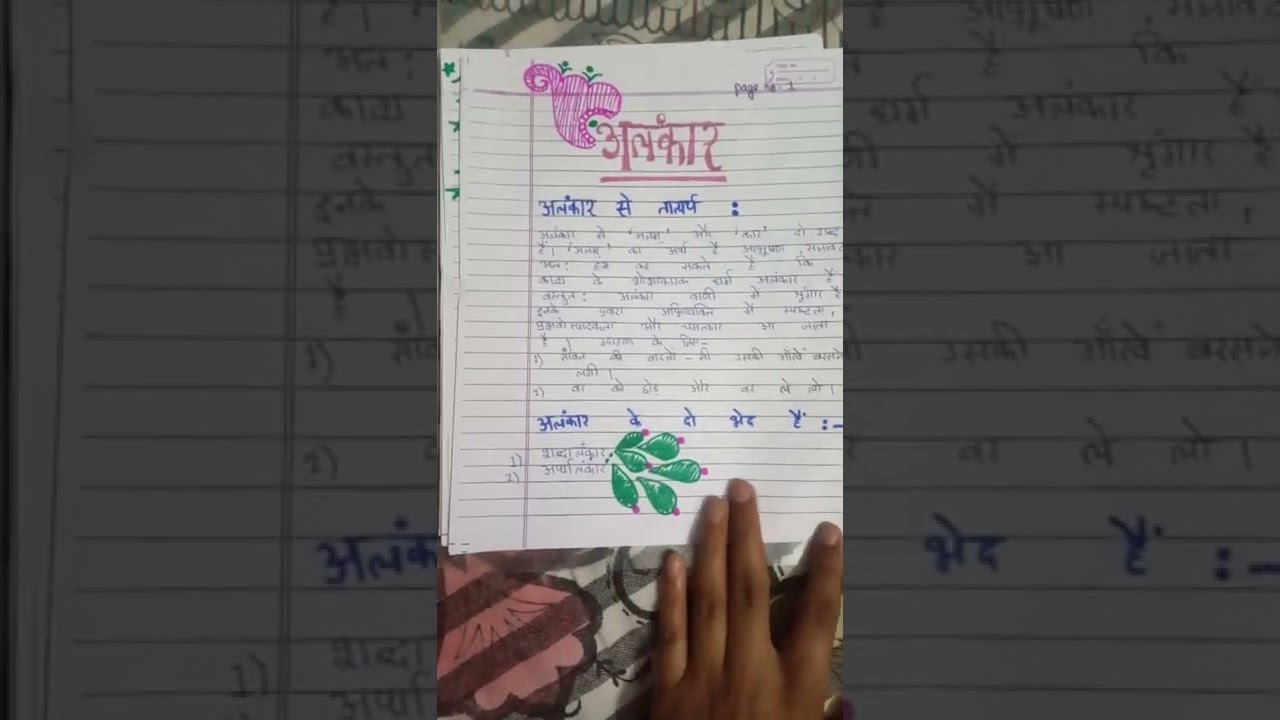 page no. 1
अलंकार
अलंकार से तात्पर्य :
अलंकार में 'अलम' और 'कार' दो शब्द
हैं। 'अलम' का अर्थ है आभूषण सजावट
अतः हम कह सकते है कि
काव्य के शोभाकारक धर्म अलंकार है
वस्तुतः अलंकार वाणी में श्रृंगार है
इनके द्वारा अभिव्यक्ति में स्पष्टता,
और चमत्कार आ जाती
है। उदाहरण के लिए-
1) सावन की बादलों - सी उसकी आँखें बरसने
लगी।
2) वर को छोड़ और वर ले लो।
अलंकार के दो भेद हैं :-
1) शब्दालंकार
2) अर्थालंकार